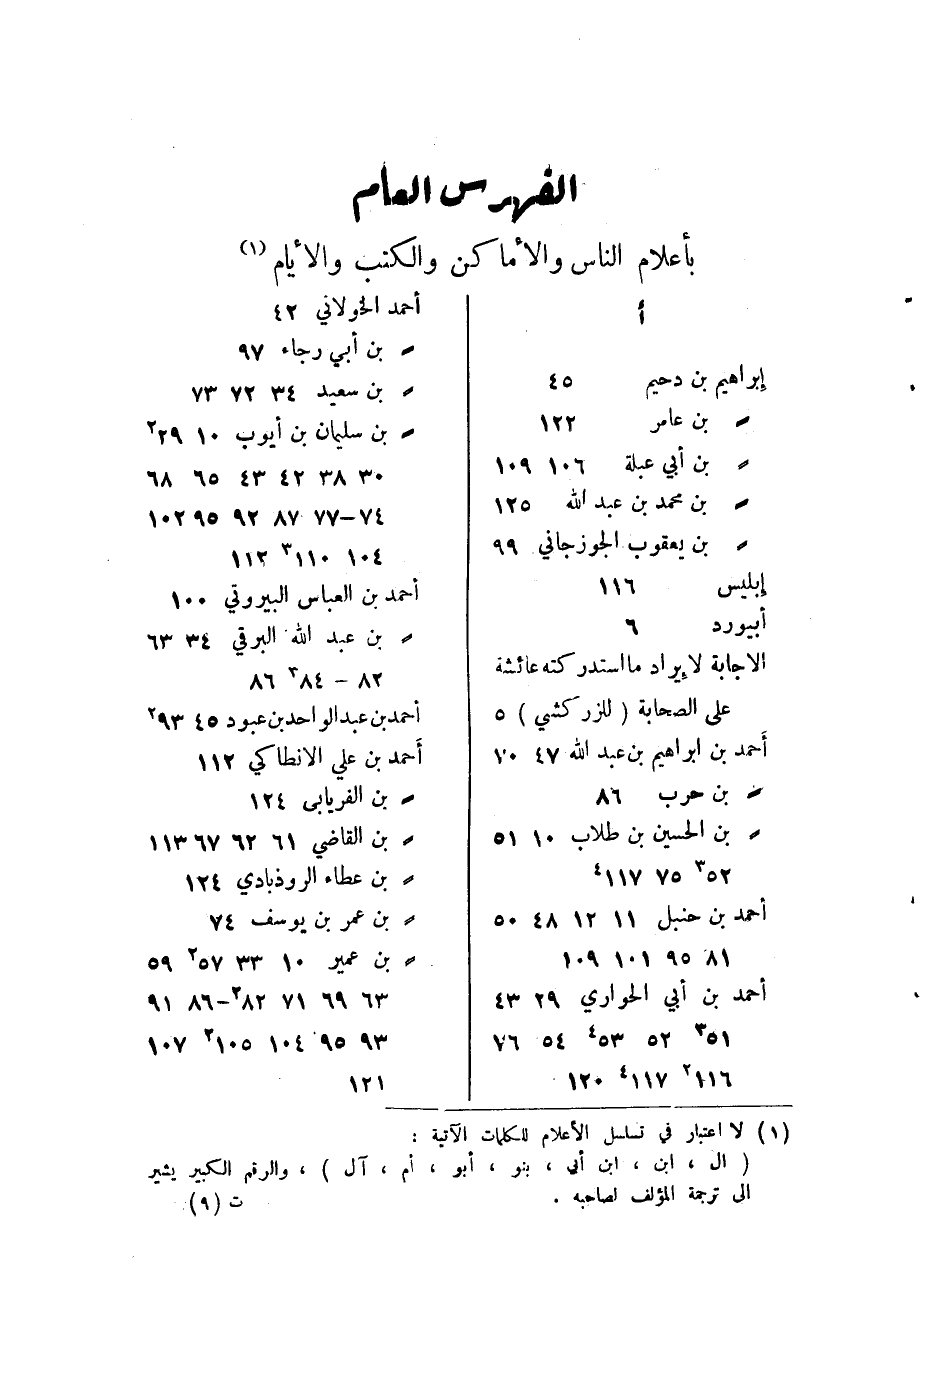 الفهرس العام
بأعلام الناس والأماكن والكتب والأيام (١)
أ
إبراهيم بن دحيم ٤٥
〃 بن عامر ١٢٢
〃 بن أبي عبلة ١٠٦ ١٠٩
〃 بن محمد بن عبد الله ١٢٥
〃 بن يعقوب الجوزجاني ٩٩
إبليس ١١٦
أبيورد ٦
الاجابة لإيراد ما استدركته عائشة
على الصحابة ( للزركشي ) ٥
أحمد بن ابراهيم بن عبد الله ٤٧ ٧٠
〃 بن حرب ٨٦
〃 بن الحسين بن طلاب ١٠ ٥١
٥٢٣ ٧٥ ١١٧٤
أحمد بن حنبل ١١ ١٢ ٤٨ ٥٠
٨١ ٩٥ ١٠١ ١٠٩
أحمد بن أبي الحواري ٢٩ ٤٣
٥١٣ ٥٢ ٥٣٤ ٥٤ ٧٦
١١٦٢ ١١٧٤ ١٢٠
أحمد الخولاني ٤٢
〃 بن أبي رجاء ٩٧
〃 بن سعيد ٣٤ ٧٢ ٧٣
〃 بن سليمان بن أيوب ١٠ ٢٩٢
٣٠ ٣٨ ٤٢ ٤٣ ٦٥ ٦٨
٧٤–٧٧ ٨٧ ٩٢ ٩٥ ١٠٢
١٠٤ ١١٠٣ ١١٢
أحمد بن العباس البيروتي ١٠٠
〃 بن عبد الله البرقي ٣٤ ٦٣
٨٢ – ٨٤٣ ٨٦
أحمد بن عبد الواحد بن عبود ٤٥ ٩٣٢
أحمد بن علي الانطاكي ١١٢
〃 بن الفريابى ١٢٤
〃 بن القاضي ٦١ ٦٢ ٦٧ ١١٣
〃 بن عطاء الروذبادي ١٢٤
〃 بن عمر بن يوسف ٧٤
〃 بن عمير ١٠ ٣٣ ٥٧٢ ٥٩
٦٣ ٦٩ ٧١ ٨٢٣–٨٦ ٩١
٩٣ ٩٥ ١٠٤ ١٠٥٢ ١٠٧
١٢١
(١) لا اعتبار في تسلسل الأعلام للكلمات الآتية :
( ال ، ابن ، ابن أبي ، بنو ، أبو ، أم ، آل ) ، والرقم الكبير يشير
الى ترجمة المؤلف لصاحبه .
ت (٩)